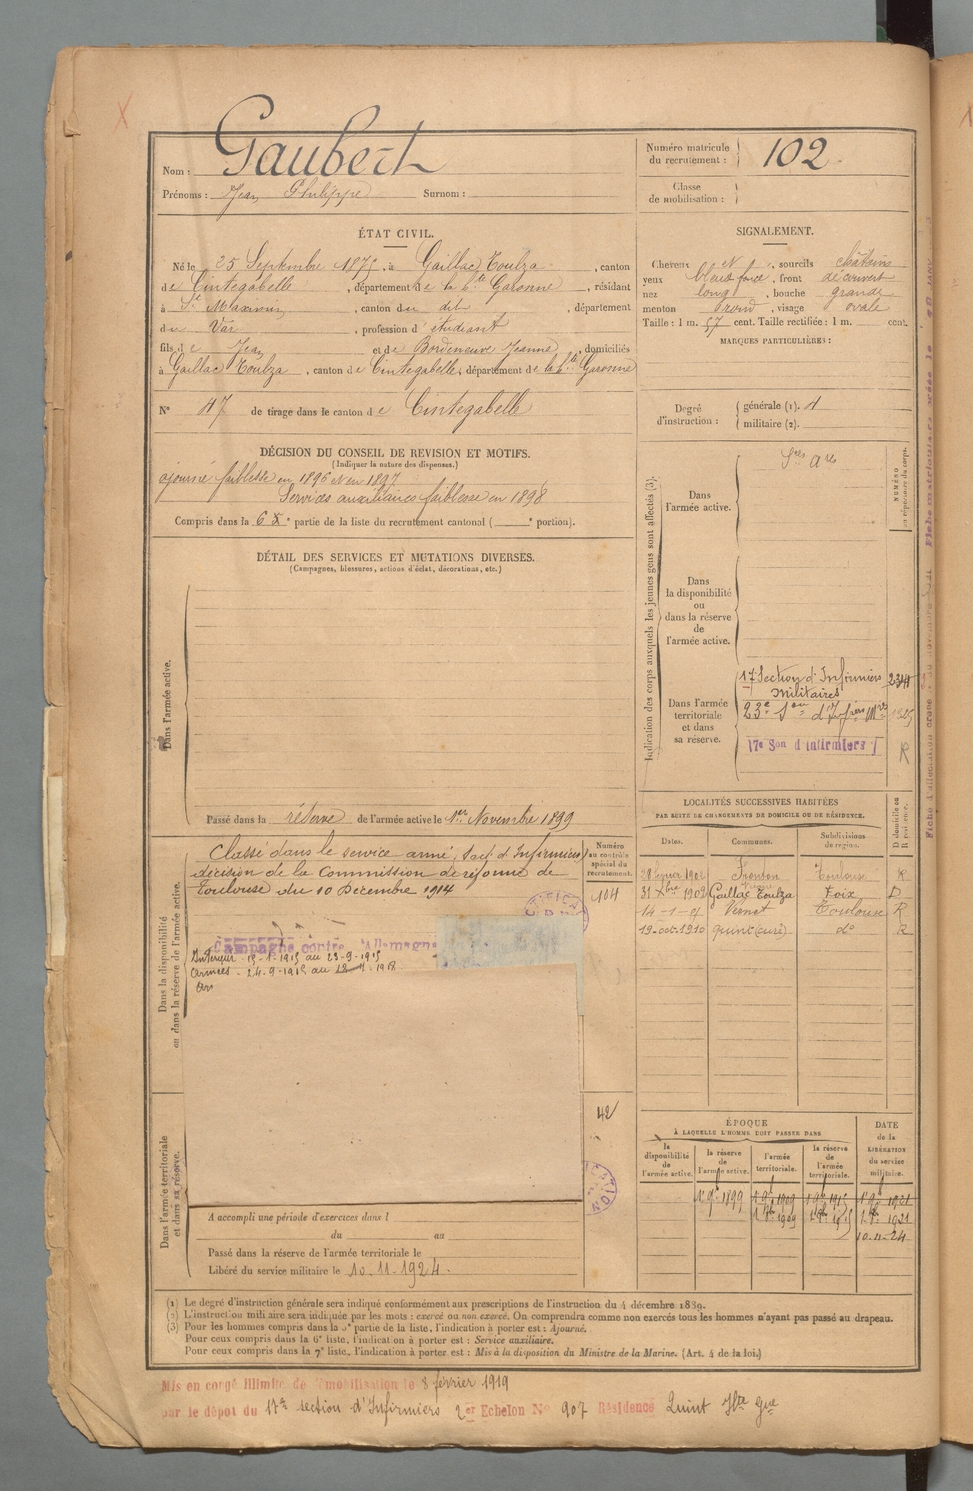 Nom : Gaubert
Prénoms : Jean Philippe Surnom :
Numéro matricule du recrutement : 102
Classe de mobilisation :
ÉTAT CIVIL.
Né le 25 Septembre 1875, à Gaillac Toulza, canton
de Cintegabelle, département de la hte Garonne, résidant
à St Maximin, canton du dit, département
du Var, profession d'étudiant
fils de Jean et de Bordeneuve Jeanne, domiciliés
à Gaillac Toulza, canton de Cintegabelle, département de la hte Garonne
N° 47 de tirage dans le canton de Cintegabelle
SIGNALEMENT.
Cheveux N, sourcils châtains
yeux bleus foncé, front découvert
nez long, bouche grande
menton rond, visage ovale
Taille : 1 m. 57 cent. Taille rectifiée : 1 m. cent.
MARQUES PARTICULIÈRES :
Degré d'instruction : générale (1).
militaire (2).
DÉCISION DU CONSEIL DE REVISION ET MOTIFS.
(Indiquer la nature des dispenses.)
ajourné faiblesse en 1896 et en 1897
Services auxiliaires faiblesse en 1898
Compris dans la 6e partie de la liste du recrutement cantonal ( e portion).
DÉTAIL DES SERVICES ET MUTATIONS DIVERSES.
(Campagnes, blessures, actions d'éclat, décorations, etc.)
Dans l'armée active.
Passé dans la réserve de l'armée active le 1er Novembre 1899
Indication des corps auxquels les jeunes gens sont affectés (3).
NUMÉRO au répertoire du corps.
Dans l'armée active.
Dans la disponibilité ou dans la réserve de l'armée active.
Dans l'armée territoriale et dans sa réserve.
17e Section d'Infirmiers Militaires
23e Son d'Infiers Mres
17e Son d'Infirmiers
R
Dans la disponibilité ou dans la réserve de l'armée active.
Classé dans le service armé, (sect. d'Infirmiers)
décision de la Commission de réforme de
Toulouse du 10 Décembre 1914
Numéro au contrôle spécial du recrutement.
104
Campagne contre l'Allemagne
Intérieur - 15-1-1915 au 23-9-1915
Armées - 24-9-1915 au
42
LOCALITÉS SUCCESSIVES HABITÉES
PAR SUITE DE CHANGEMENTS DE DOMICILE OU DE RÉSIDENCE.
Dates. Communes. Subdivisions de région. D domicile ou R résidence.
Fronton Toulouse R
31 Xbre 1902 Gaillac Toulza Foix D
14-1-07 Vernet Toulouse R
19-oct-1910 Quint (curé) do R
ÉPOQUE
À LAQUELLE L'HOMME DOIT PASSER DANS
la disponibilité de l'armée active. la réserve de l'armée active. l'armée territoriale. la réserve de l'armée territoriale.
DATE de la LIBÉRATION du service militaire.
10-11-24
Dans l'armée territoriale et dans sa réserve.
A accompli une période d'exercices dans l
du au
Passé dans la réserve de l'armée territoriale le
Libéré du service militaire le 10-11-1924.
(1) Le degré d'instruction générale sera indiqué conformément aux prescriptions de l'instruction du 4 décembre 1889.
(2) L'instruction militaire sera indiquée par les mots : exercé ou non exercé. On comprendra comme non exercés tous les hommes n'ayant pas passé au drapeau.
(3) Pour les hommes compris dans la 5e partie de la liste, l'indication à porter est : Ajourné.
Pour ceux compris dans la 6e liste, l'indication à porter est : Service auxiliaire.
Pour ceux compris dans la 7e liste, l'indication à porter est : Mis à la disposition du Ministre de la Marine. (Art. 4 de la loi.)
Mis en congé illimité de démobilisation le 8 février 1919
par le dépot du 17e section d'Infirmiers 2er Echelon N° 907 Résidence Quint Hte Gne